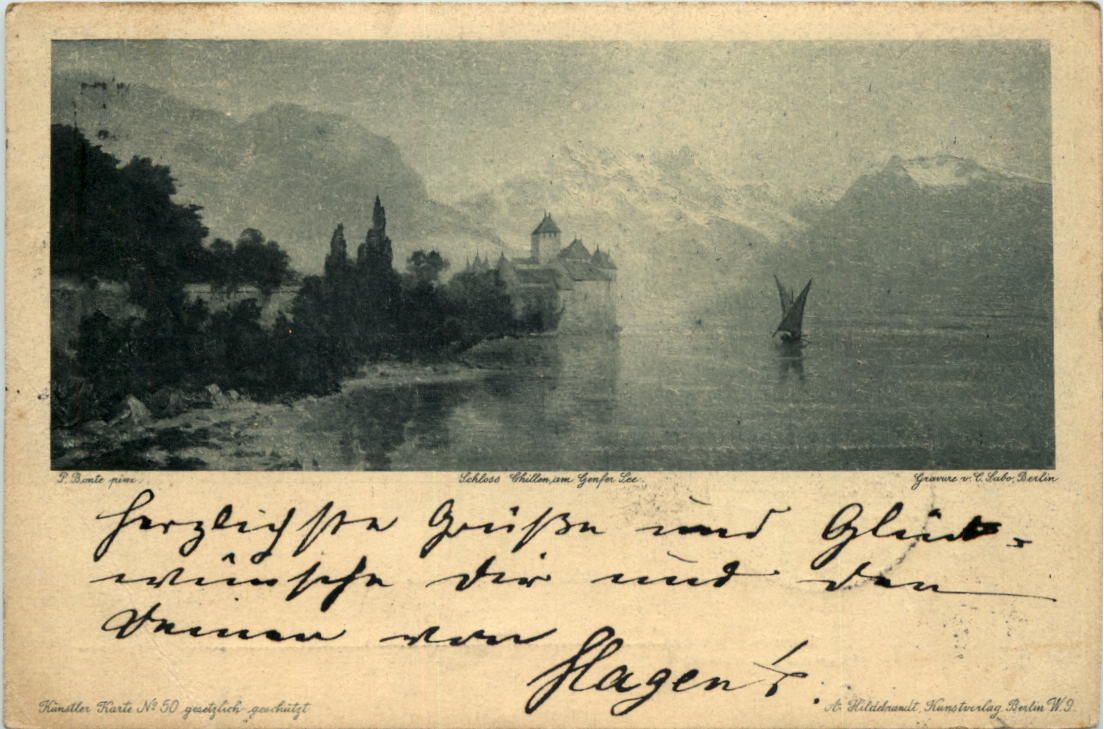 P. Bonte pinx.
Schloss Chillon, am Genfer See.
Gravure v. C. Sabo, Berlin
herzlichste Grüße und Glück-
wünsche Dir und den
Deinen von
Hagen's.
Künstler Karte No 50 gesetzlich geschützt
A. Hildebrandt, Kunstverlag Berlin W.9.